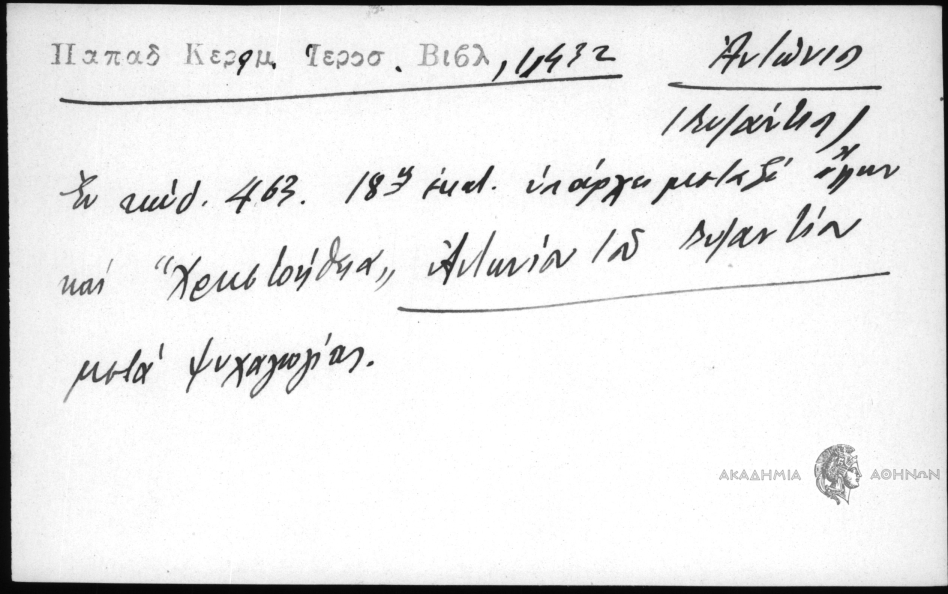 Παπαδ Κεραμ. Ἱεροσ. Βιβλ, 1,432
Ἀντώνιος
(Βυζάντιος)
Ἐν κώδ. 463. 18ου ἑκατ. ὑπάρχει μεταξὺ ἄλλων
καὶ "Χρηστοήθεια„ Ἀντωνίου τοῦ Βυζαντίου
μετὰ ψυχαγωγίας.
ΑΚΑΔΗΜΙΑ ΑΘΗΝΩΝ